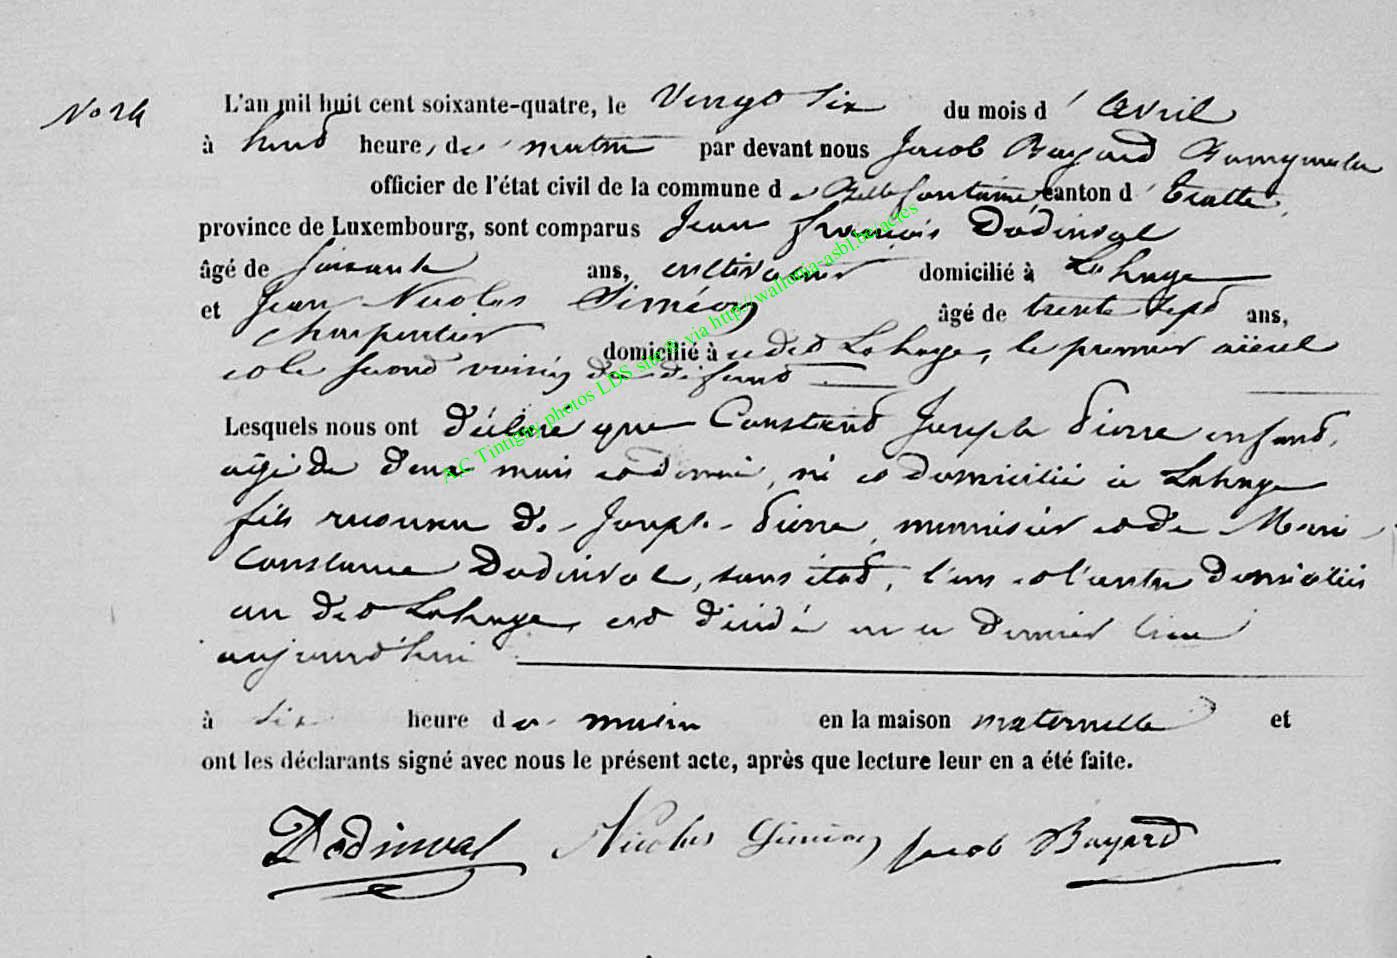 No 24
L'an mil huit cent soixante-quatre, le Vingt Six du mois d' Avril
à huit heures du matin par devant nous Jacob Bayard Bourgmestre
officier de l'état civil de la commune de Bellefontaine canton d' Etalle,
province de Luxembourg, sont comparus Jean françois Dodinval
âgé de soixante ans, cultivateur domicilié à Lahage
et Jean Nicolas Siméon âgé de trente sept ans,
charpentier domicilié à audit Lahage, le premier aïeul
et le second voisin du défunt
Lesquels nous ont déclaré que Constant Joseph Pierre enfant,
agé de deux mois et demi, né et domicilié à Lahage
fils reconnu de Joseph Pierre, menuisier et de Marie
Constance Dodinval, sans état, l'un et l'autre domiciliés
au dit Lahage, est décédé en ce dernier lieu
aujourd'hui
à six heure du matin en la maison maternelle et
ont les déclarants signé avec nous le présent acte, après que lecture leur en a été faite.
Dodinval Nicolas Siméon Jacob Bayard
AC Tintigny photos LDS site via http://wallonia-asbl.be/actes